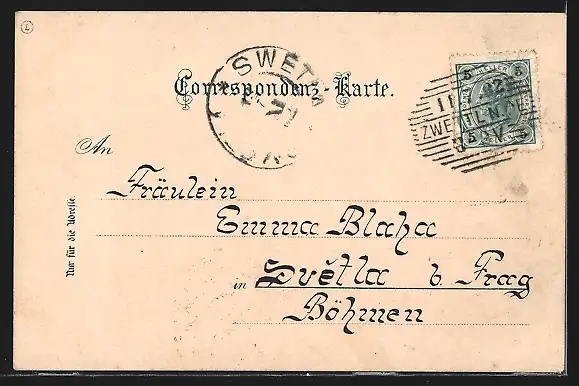 L
SWETLA
5 5
Correspondenz-Karte.
ZWETTL N.Ö.
5 5
An
Nur für die Adresse.
Fräulein
Emma Blaha
in Světla b. Prag
Böhmen